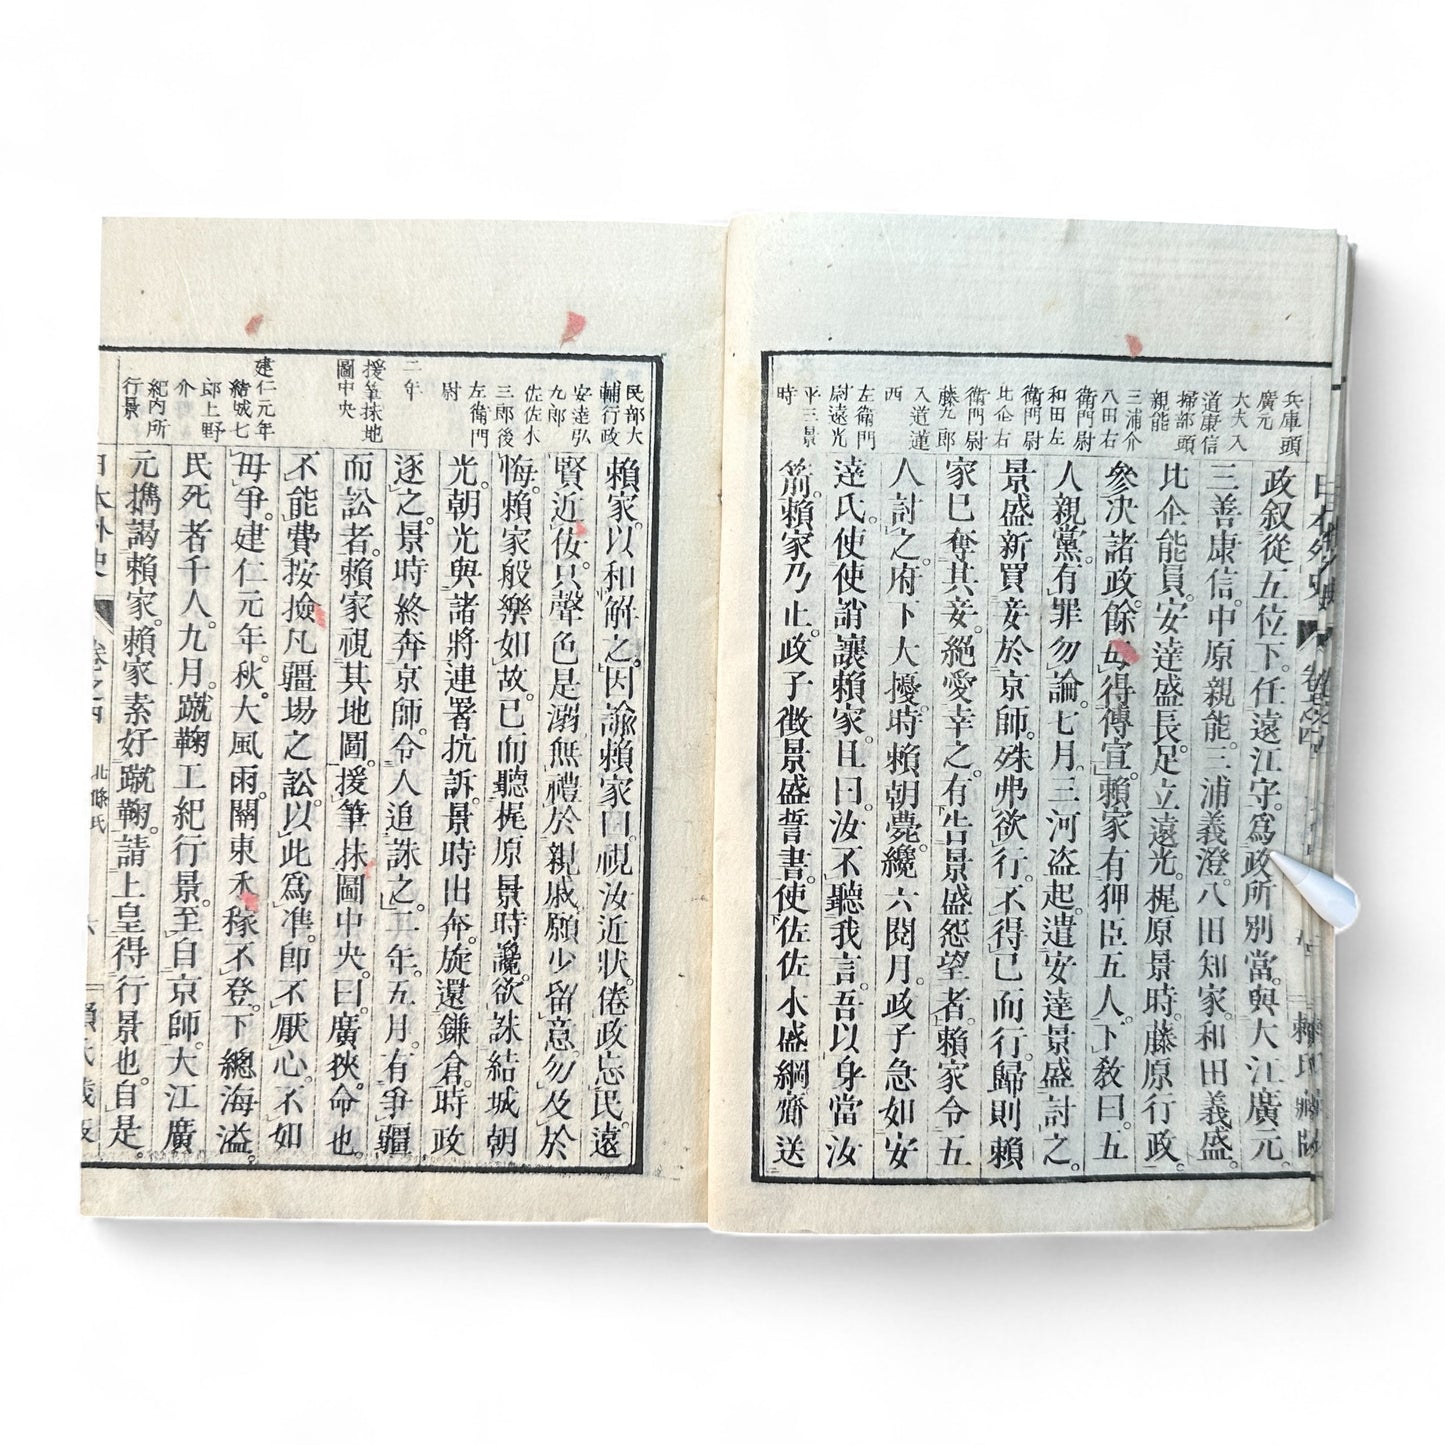 兵庫頭
廣元
大夫入
道康信
掃部頭
親能
三浦介
八田右
衛門尉
和田左
衛門尉
比企右
衛門尉
藤九郎
入道蓮
西
左衛門
尉遠光
平三景
時
政叙從五位下。任遠江守。爲政所別當。與大江廣元。
三善康信。中原親能。三浦義澄。八田知家。和田義盛。
比企能員。安達盛長。足立遠光。梶原景時。藤原行政。
參決諸政。餘毋得傳宣。賴家有狎臣五人。下敎曰。五
人親黨。有罪勿論。七月。三河盗起。遣安達景盛討之。
景盛新買妾於京師。殊弗欲行。不得已而行。歸則賴
家已奪其妾。絕愛幸之。有告景盛怨望者。賴家令五
人討之。府下大擾。時賴朝薨。纔六閱月。政子急如安
達氏。使使誚讓賴家。且曰。汝不聽我言。吾以身當汝
箭。賴家乃止。政子徵景盛誓書。使佐佐木盛綱齎送
民部大
輔行政
安達弘
九郎
佐佐木
三郎後
左衛門
尉
二年
援筆抹地
圖中央
建仁元年
結城七
郎上野
介
紀內所
行景
賴家。以和解之。因諭賴家曰。視汝近狀。倦政忘民。遠
賢近佞。只聲色是溺。無禮於親戚。願少留意。勿及於
悔。賴家般樂如故。已而聽梶原景時讒。欲誅結城朝
光。朝光與諸將連署抗訴。景時出奔。旋還鎌倉。時政
逐之。景時終奔京師。令人追誅之。二年。五月。有爭疆
而訟者。賴家視其地圖。援筆抹圖中央。曰。廣狹。命也。
不能費按撿。凡疆場之訟。以此爲准。即不厭心。不如
毋爭。建仁元年。秋。大風雨。關東禾稼不登。下總海溢。
民死者千人。九月。蹴鞠工紀行景。至自京師。大江廣
元擕謁賴家。賴家素好蹴鞠。請上皇得行景也。自是。
日本外史 卷之四 北條氏 六